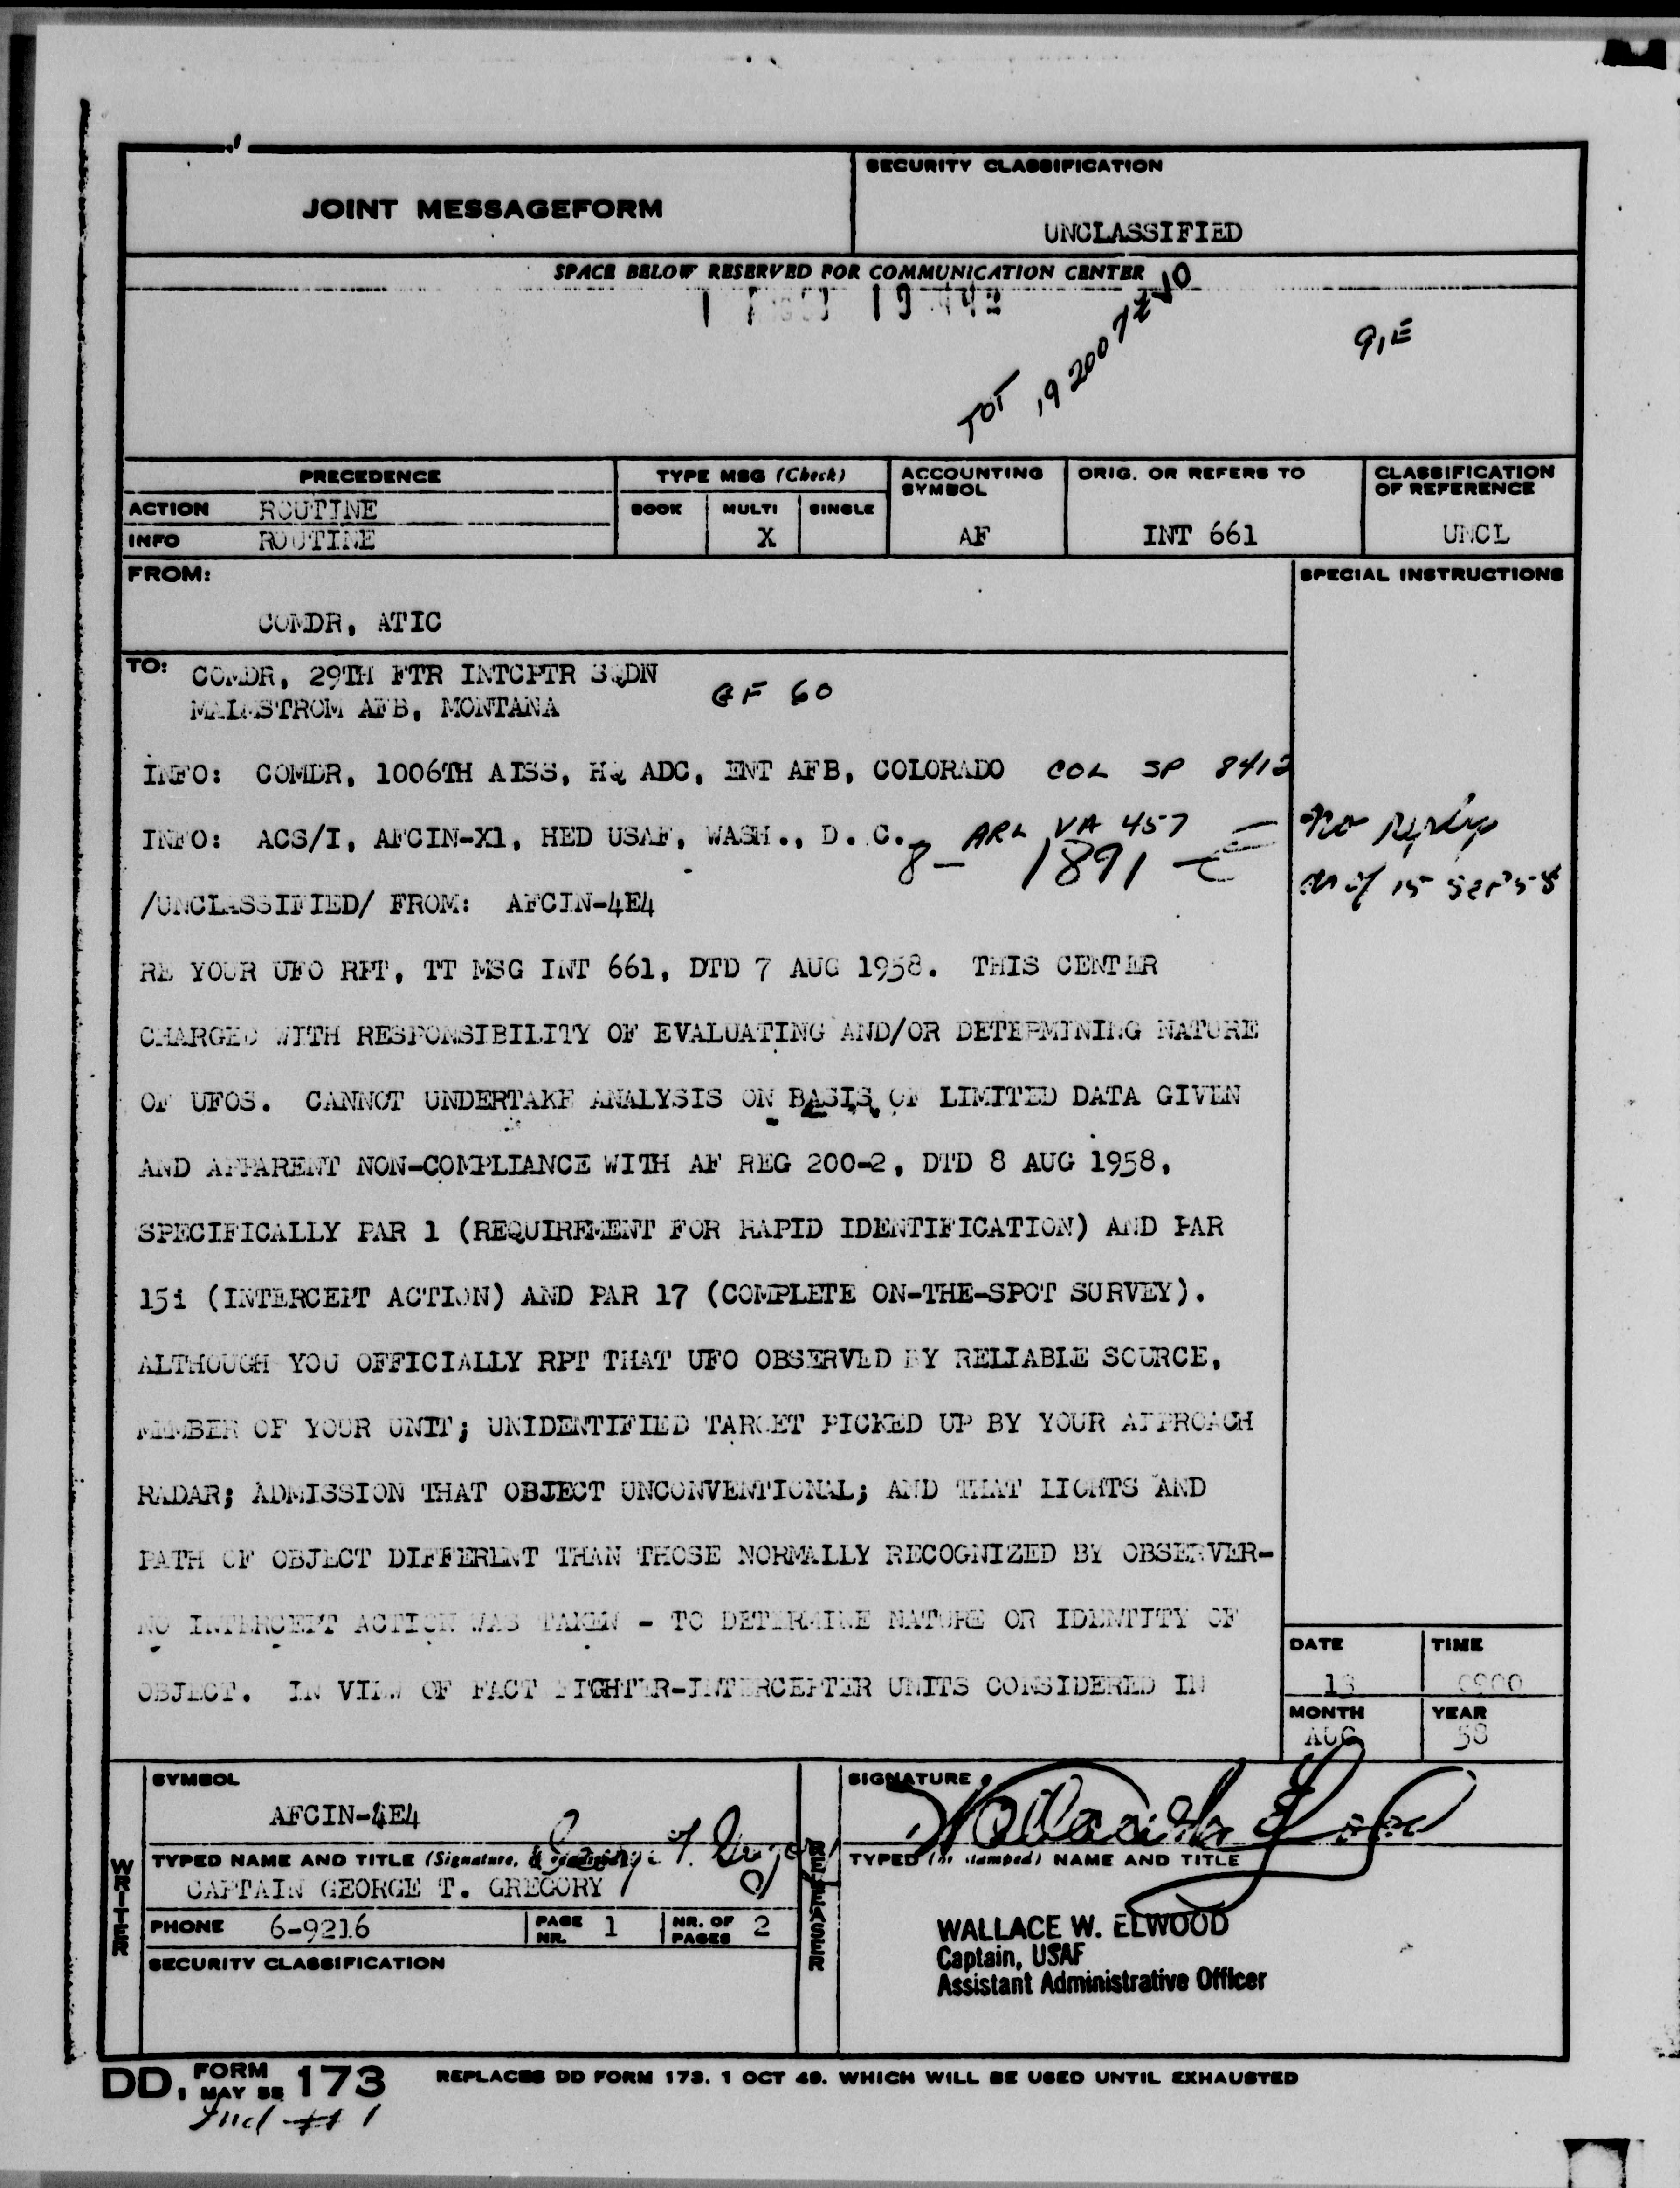 JOINT MESSAGEFORM
SECURITY CLASSIFICATION
UNCLASSIFIED
SPACE BELOW RESERVED FOR COMMUNICATION CENTER
TOT
PRECEDENCE
TYPE MSG (Check)
ACCOUNTING SYMBOL
ORIG. OR REFERS TO
CLASSIFICATION OF REFERENCE
ACTION ROUTINE
BOOK MULTI SINGLE
INFO ROUTINE
X
AF
INT 661
UNCL
FROM:
SPECIAL INSTRUCTIONS
COMDR, ATIC
TO: COMDR, 29TH FTR INTCPTR SQDN
MALMSTROM AFB, MONTANA GF 60
INFO: COMDR, 1006TH AISS, HQ ADC, ENT AFB, COLORADO COL SP 8412
INFO: ACS/I, AFCIN-X1, HED USAF, WASH., D. C. ARL VA 457
8- 1891-E
No reply
as of 15 Sep 58
/UNCLASSIFIED/ FROM: AFCIN-4E4
RE YOUR UFO RPT, TT MSG INT 661, DTD 7 AUG 1958. THIS CENTER
CHARGED WITH RESPONSIBILITY OF EVALUATING AND/OR DETERMINING NATURE
OF UFOS. CANNOT UNDERTAKE ANALYSIS ON BASIS OF LIMITED DATA GIVEN
AND APPARENT NON-COMPLIANCE WITH AF REG 200-2, DTD 8 AUG 1958,
SPECIFICALLY PAR 1 (REQUIREMENT FOR RAPID IDENTIFICATION) AND PAR
15i (INTERCEPT ACTION) AND PAR 17 (COMPLETE ON-THE-SPOT SURVEY).
ALTHOUGH YOU OFFICIALLY RPT THAT UFO OBSERVED BY RELIABLE SOURCE,
MEMBER OF YOUR UNIT; UNIDENTIFIED TARGET PICKED UP BY YOUR APPROACH
RADAR; ADMISSION THAT OBJECT UNCONVENTIONAL; AND THAT LIGHTS AND
PATH OF OBJECT DIFFERENT THAN THOSE NORMALLY RECOGNIZED BY OBSERVER-
NO INTERCEPT ACTION WAS TAKEN - TO DETERMINE NATURE OR IDENTITY OF
OBJECT. IN VIEW OF FACT FIGHTER-INTERCEPTER UNITS CONSIDERED IN
DATE
TIME
13
0900
MONTH
YEAR
AUG
58
SYMBOL
SIGNATURE
AFCIN-4E4
George T. Gregory
Wallace W. Elwood
WRITER
TYPED NAME AND TITLE (Signature,
CAPTAIN GEORGE T. GREGORY
PHONE 6-9216
PAGE NR. 1
NR. OF PAGES 2
SECURITY CLASSIFICATION
RELEASER
TYPED (or stamped) NAME AND TITLE
WALLACE W. ELWOOD
Captain, USAF
Assistant Administrative Officer
DD, FORM 173
REPLACES DD FORM 173, 1 OCT 49, WHICH WILL BE USED UNTIL EXHAUSTED
Incl #1